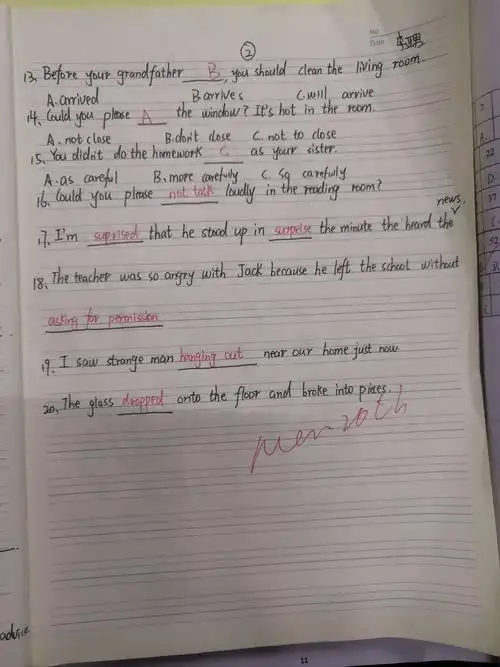 No
Date 李驷
②
13. Before your grandfather B, you should clean the living room.
A. arrived B. arrives C. will arrive
14. Could you please A the window? It's hot in the room.
A. not close B. don't close C. not to close
15. You didn't do the homework C as your sister.
A. as careful B. more carefully C. so carefully
16. Could you please not talk loudly in the reading room?
news.
17. I'm suprised that he stood up in surprise the minute the heard the
18. The teacher was so angry with Jack because he left the school without
asking for permission
19. I saw strange man hanging out near our home just now
20. The glass dropped onto the floor and broke into pixes.
advice
11